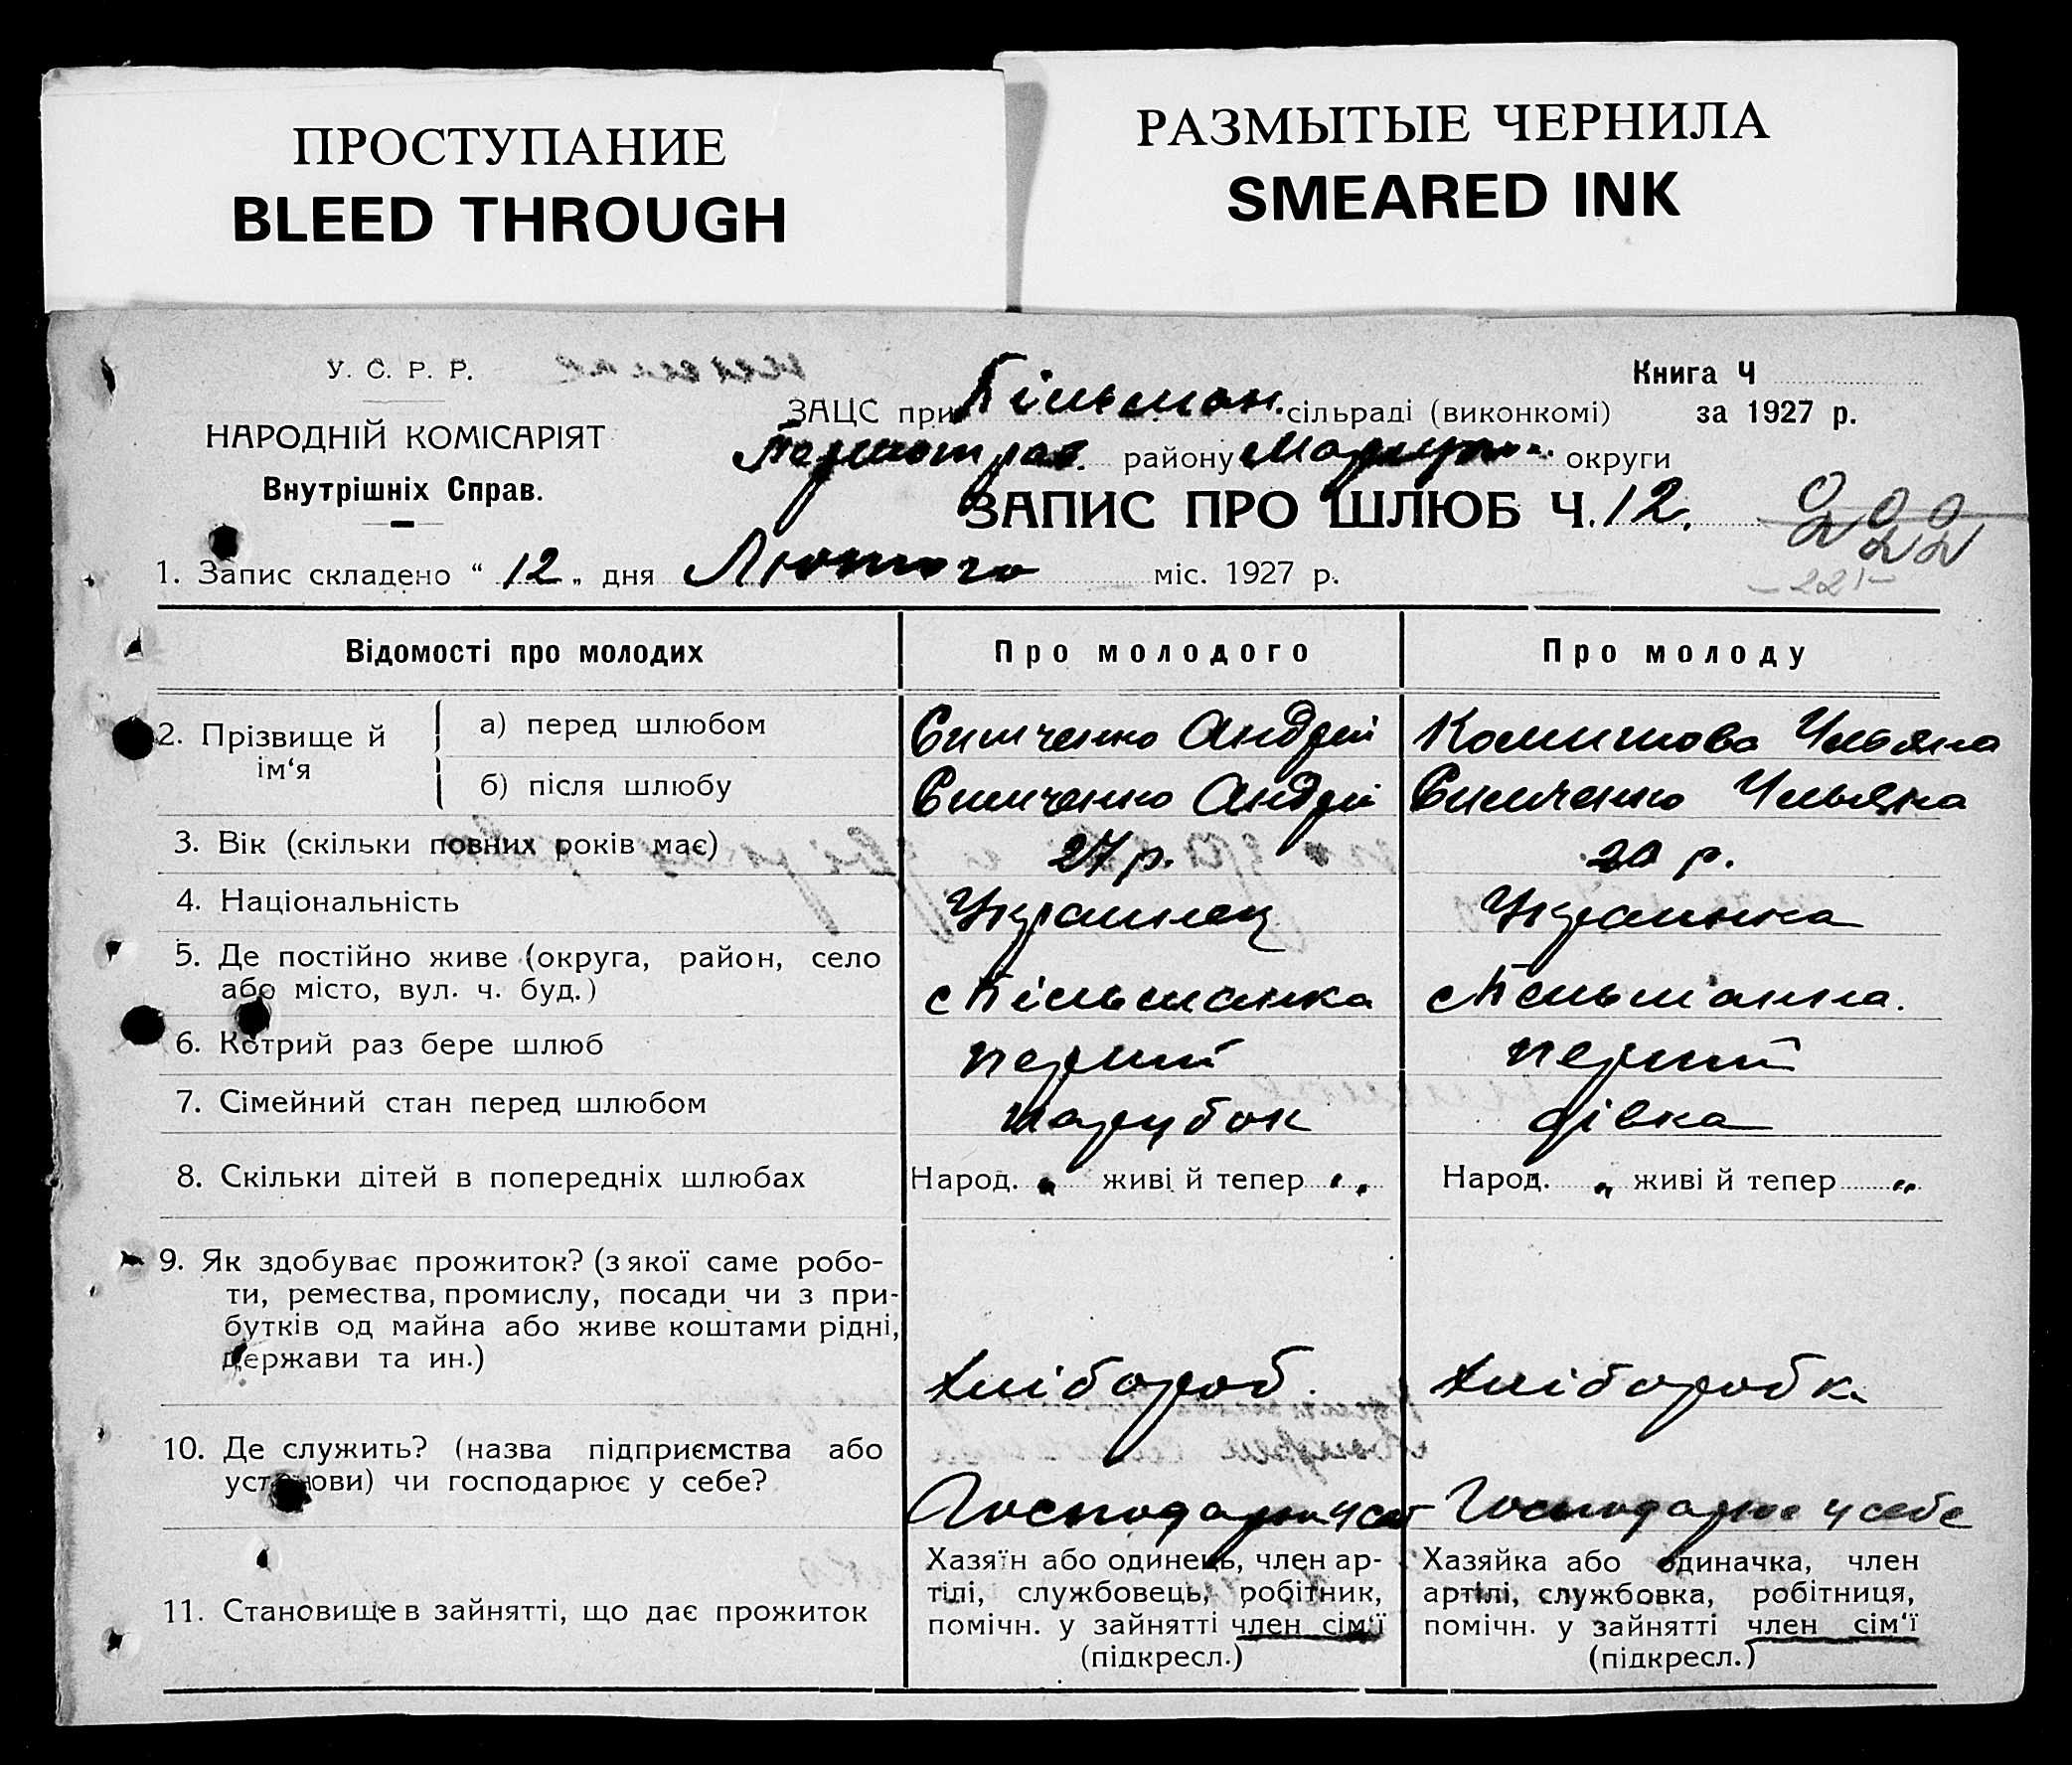 ПРОСТУПАНИЕ
BLEED THROUGH
РАЗМЫТЫЕ ЧЕРНИЛА
SMEARED INK
У. С. Р. Р.
НАРОДНІЙ КОМІСАРІЯТ
Внутрішніх Справ.
Книга Ч
за 1927 р.
ЗАЦС при Більман. сільраді (виконкомі)
району Маріуп. округи
ЗАПИС ПРО ШЛЮБ Ч. 12.
222
-221-
1. Запис складено “ 12 „ дня Лютого міс. 1927 р.
Відомості про молодих Про молодого Про молоду
2. Прізвище й ім‘я
а) перед шлюбом Андрій Ульяна
б) після шлюбу Андрій Ульяна
3. Вік (скільки повних років має) 27 р. 20 р.
4. Національність Украинец Украинка
5. Де постійно живе (округа, район, село
або місто, вул. ч. буд.) с Більманка
6. Котрий раз бере шлюб перший перший
7. Сімейний стан перед шлюбом парубок дівка
8. Скільки дітей в попередніх шлюбах Народ. „ живі й тепер „ Народ. „ живі й тепер „
9. Як здобуває прожиток? (з якої саме робо-
ти, ремества, промислу, посади чи з при-
бутків од майна або живе коштами рідні,
держави та ин.) Хлібороб. Хліборобка
10. Де служить? (назва підприємства або
установи) чи господарює у себе? Господарює у себе
11. Становище в зайнятті, що дає прожиток
Хазяїн або одинець, член ар-
тілі, службовець, робітник,
помічн. у зайнятті член сім‘ї
(підкресл.)
Хазяйка або одиначка, член
артілі, службовка, робітниця,
помічн. у зайнятті член сім‘ї
(підкресл.)